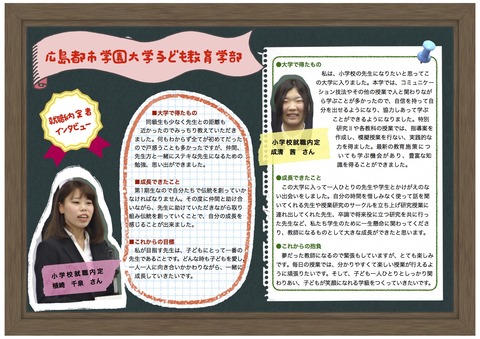 広島都市学園大学子ども教育学部
就職内定者
インタビュー
■大学で得たもの
同級生も少なく先生との距離も
近かったのでみっちり教えていただき
ました。何もわからず全てが初めてだった
ので戸惑うことも多かったですが、仲間、
先生方と一緒にステキな先生になるための
勉強、思い出ができました。
■成長できたこと
第1期生なので自分たちで伝統を創っていか
なければなりません。その度に仲間と助け合い
ながら、先生に助けていただきながら取り
組み伝統を創っていくことで、自分の成長を
感じることが出来ました。
■これからの目標
私が目指す先生は、子どもにとって一番の
先生であることです。どんな時も子どもを愛し
一人一人に向き合いかかわりながら、一緒に
成長していきたいです。
小学校就職内定
植崎 千泉 さん
●大学で得たもの
私は、小学校の先生になりたいと思ってこ
の大学に入りました。本学では、コミュニケー
ション技法やその他の授業で人と関わりなが
ら学ぶことが多かったので、自信を持って自
分を出せるようになり、協力しあって学ぶ
ことができるようになりました。特別
研究Ⅱや各教科の授業では、指導案を
作成し、模擬授業を行ない、実践的な
力を得ました。最新の教育施策につ
いても学ぶ機会があり、豊富な知
識を得ることができました。
小学校就職内定
成清 茜 さん
●成長できたこと
この大学に入って一人ひとりの先生や学生とかけがえのな
い出会いをしました。自分の時間を惜しみなく使って話を聞
いてくれる先生や授業研究のサークルを立ち上げ研究授業に
連れ出してくれた先生、卒論で将来役に立つ研究を共に行っ
た先生など、私たち学生のために一生懸命に関わってくださ
り、教師になるものとして大きな成長ができたと思います。
●これからの抱負
夢だった教師になるので緊張もしていますが、とても楽しみ
です。毎日の授業では、分かりやすくて楽しい授業が行えるよ
うに頑張りたいです。そして、子ども一人ひとりとしっかり関
わりあい、子どもが笑顔になれる学級をつくっていきたいです。